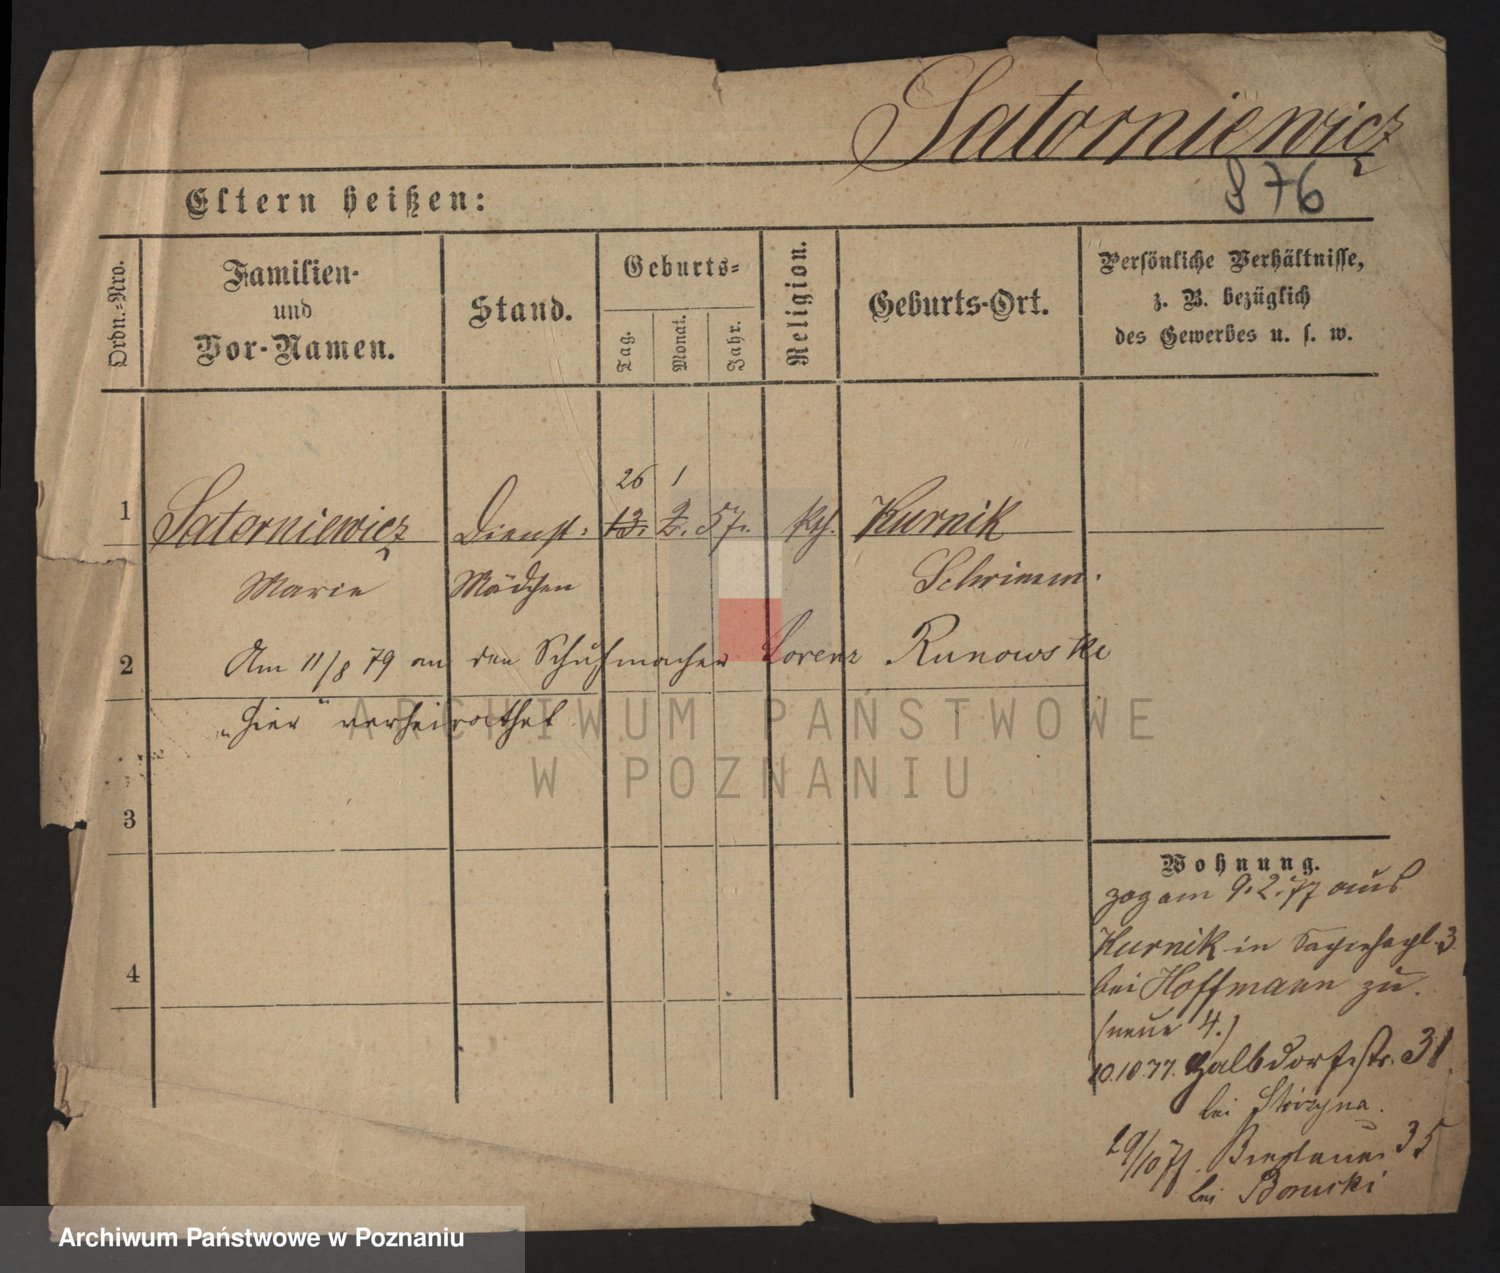 Satorniewicz
876
Eltern heißen:
Ordn.-Nro.
Familien-
und
Vor-Namen.
Stand.
Geburts-
Tag.
Monat.
Jahr.
Religion.
Geburts-Ort.
Persönliche Verhältnisse,
z. B. bezüglich
des Gewerbes u. s. w.
26 1
1 Satorniewicz Dienst- 13. 2. 57. kth. Kurnik
Marie Mädchen Schrimm.
2 Am 11/8 79 an den Schuhmacher Lorenz Runowski
"hier" verheirathet
3
4
Wohnung.
zog am 9.2.77 aus
Kurnik in 3.
bei Hoffmann zu.
(neue 4.)
10.10.77. Halbdorfstr. 31.
bei
29/10 77. Breslauer 35
bei
ARCHIWUM PAŃSTWOWE
W POZNANIU
Archiwum Państwowe w Poznaniu